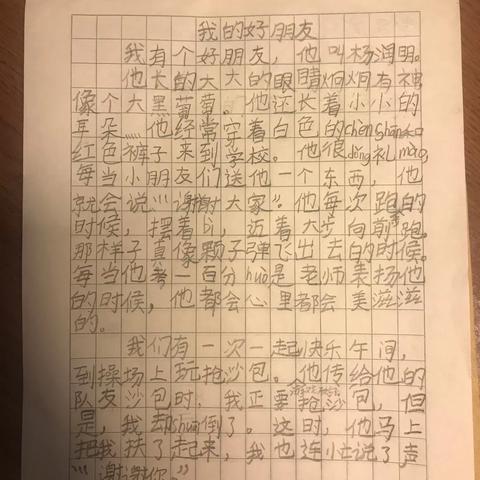 我的好朋友
我有个好朋友，他叫杨润明。
他长的大大的眼睛炯炯有神，
像个大黑葡萄。他还长着小小的
耳朵…他经常穿着白色的chènshān和
红色裤子来到学校。他很dǒng礼mào，
每当小朋友们送他一个东西，他
就会说“谢谢大家”。他每次跑的
时候，摆着bì，迈着大步向前跑。
那样子真像颗子弹飞出去的时候。
每当他考一百分huò是老师表扬他
的时候，他都会心里都会美滋滋
的。
我们有一次一起快乐午间，
到操场上玩抢沙包。他传给他的
队友沙包时，我正要抢沙包，但
是，我却shuāi倒了。这时，他马上
把我扶了起来，我也连忙说了声
“谢谢你。”